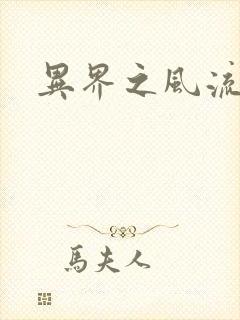 異界之風流
馬夫人